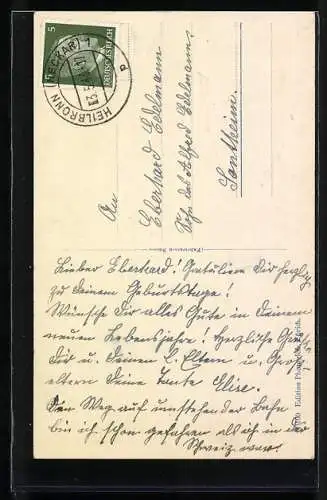 5
DEUTSCHES REICH
HEILBRONN (NECKAR) 1
An
Eberhard Edelmann
Sohn des Alfred Edelmann
Sontheim.
Lieber Eberhard! Gratuliere Dir herzlich
zu Deinem Geburtstage!
Wünsche Dir alles Gute in Deinem
neuen Lebensjahre! Herzliche Grüße
Dir u. Deinen l. Eltern u. Groß-
eltern Deine Tante Elise.
Den Weg auf umstehender Bahn
bin ich schon gefahren als ich in der
Schweiz war.
Edition